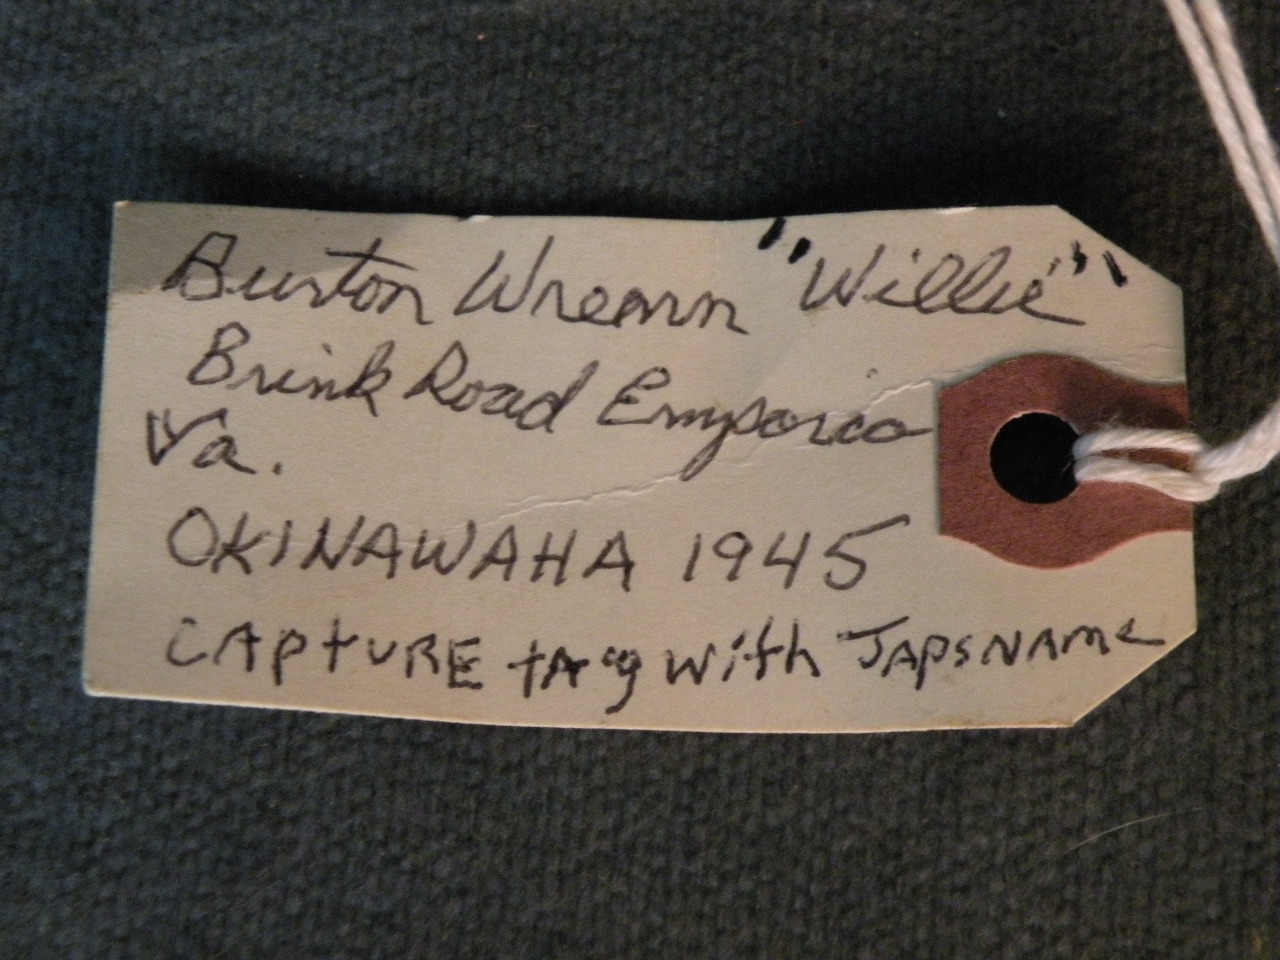 Burton Wrearn "Willie"
Brink Road Emysorica
Va.
OKINAWAHA 1945
CAPTURE tAg with JAPSNAME